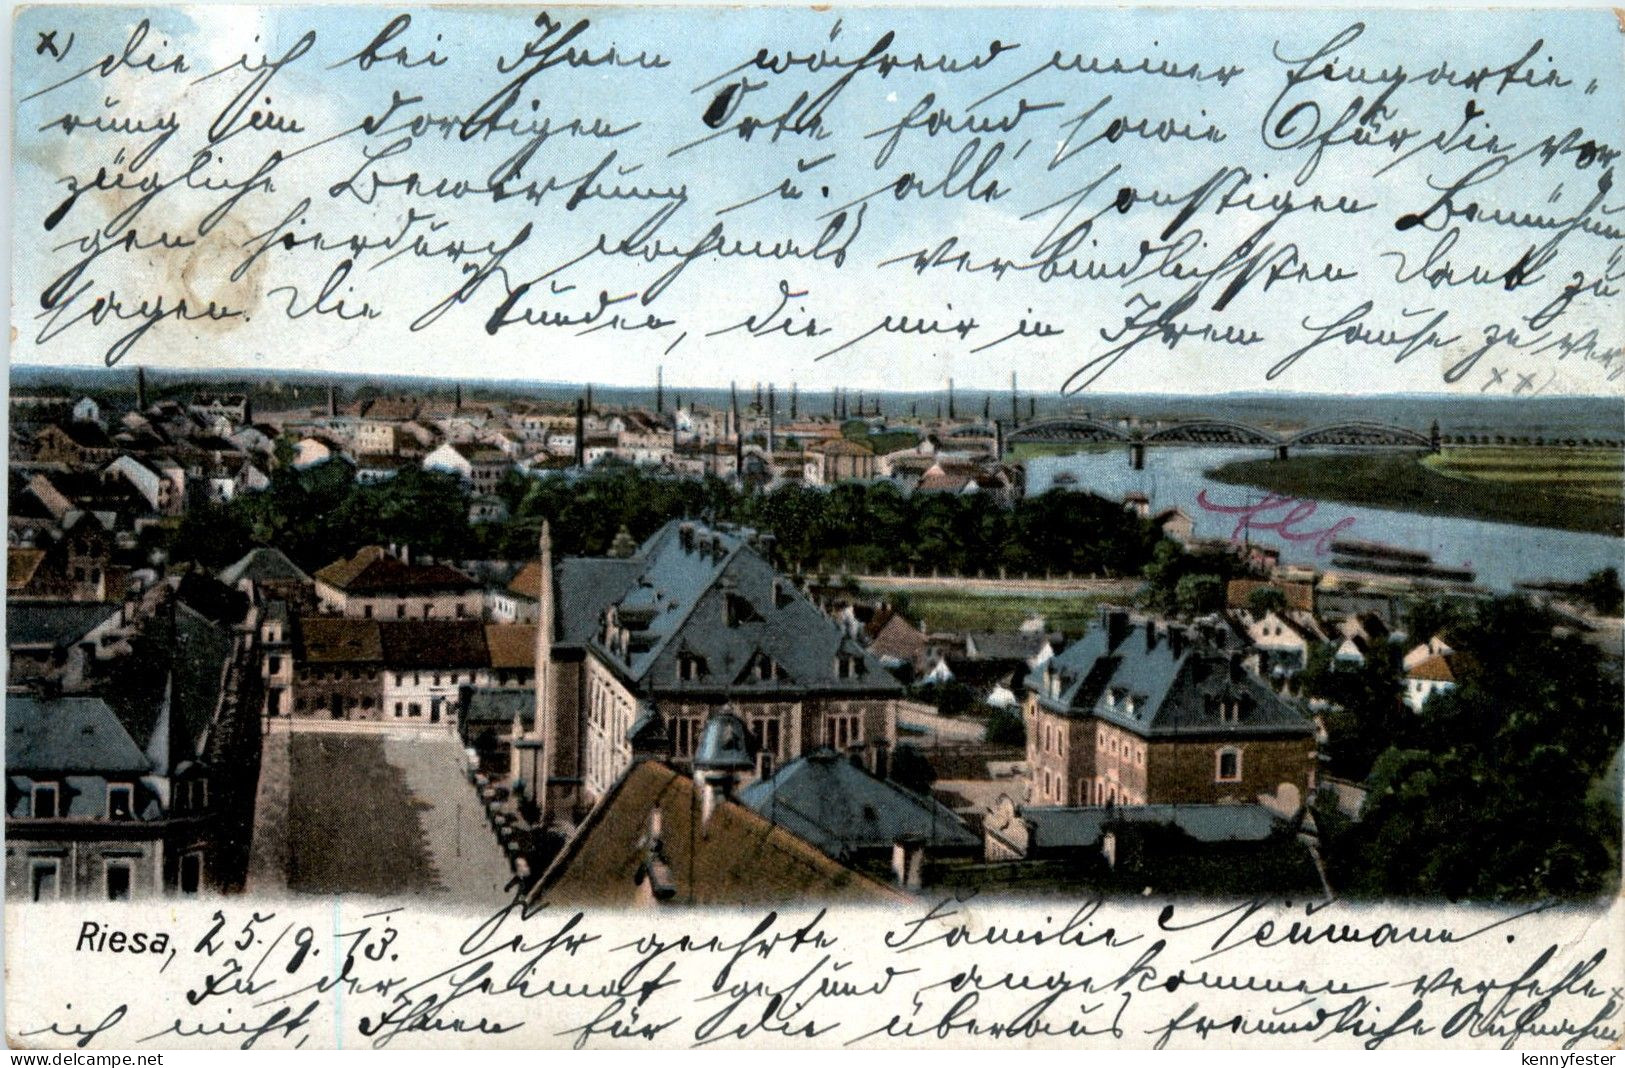 x) die ich bei Ihnen während meiner Einquartie-
rung im dortigen Orte fand, sowie für die vor
zügliche Bewirtung u. alle sonstigen Bemühun
gen hierdurch nochmals verbindlichsten Dank zu
sagen. Die Stunden, die mir in Ihrem Hause zu ver
xx)
Elbe
Riesa, 25./9. 13. Sehr geehrte Familie Neumann.
In der Heimat gesund angekommen verfehle
ich nicht, Ihnen für die überaus freundliche Aufnahm
delcampe.net
kennyfester